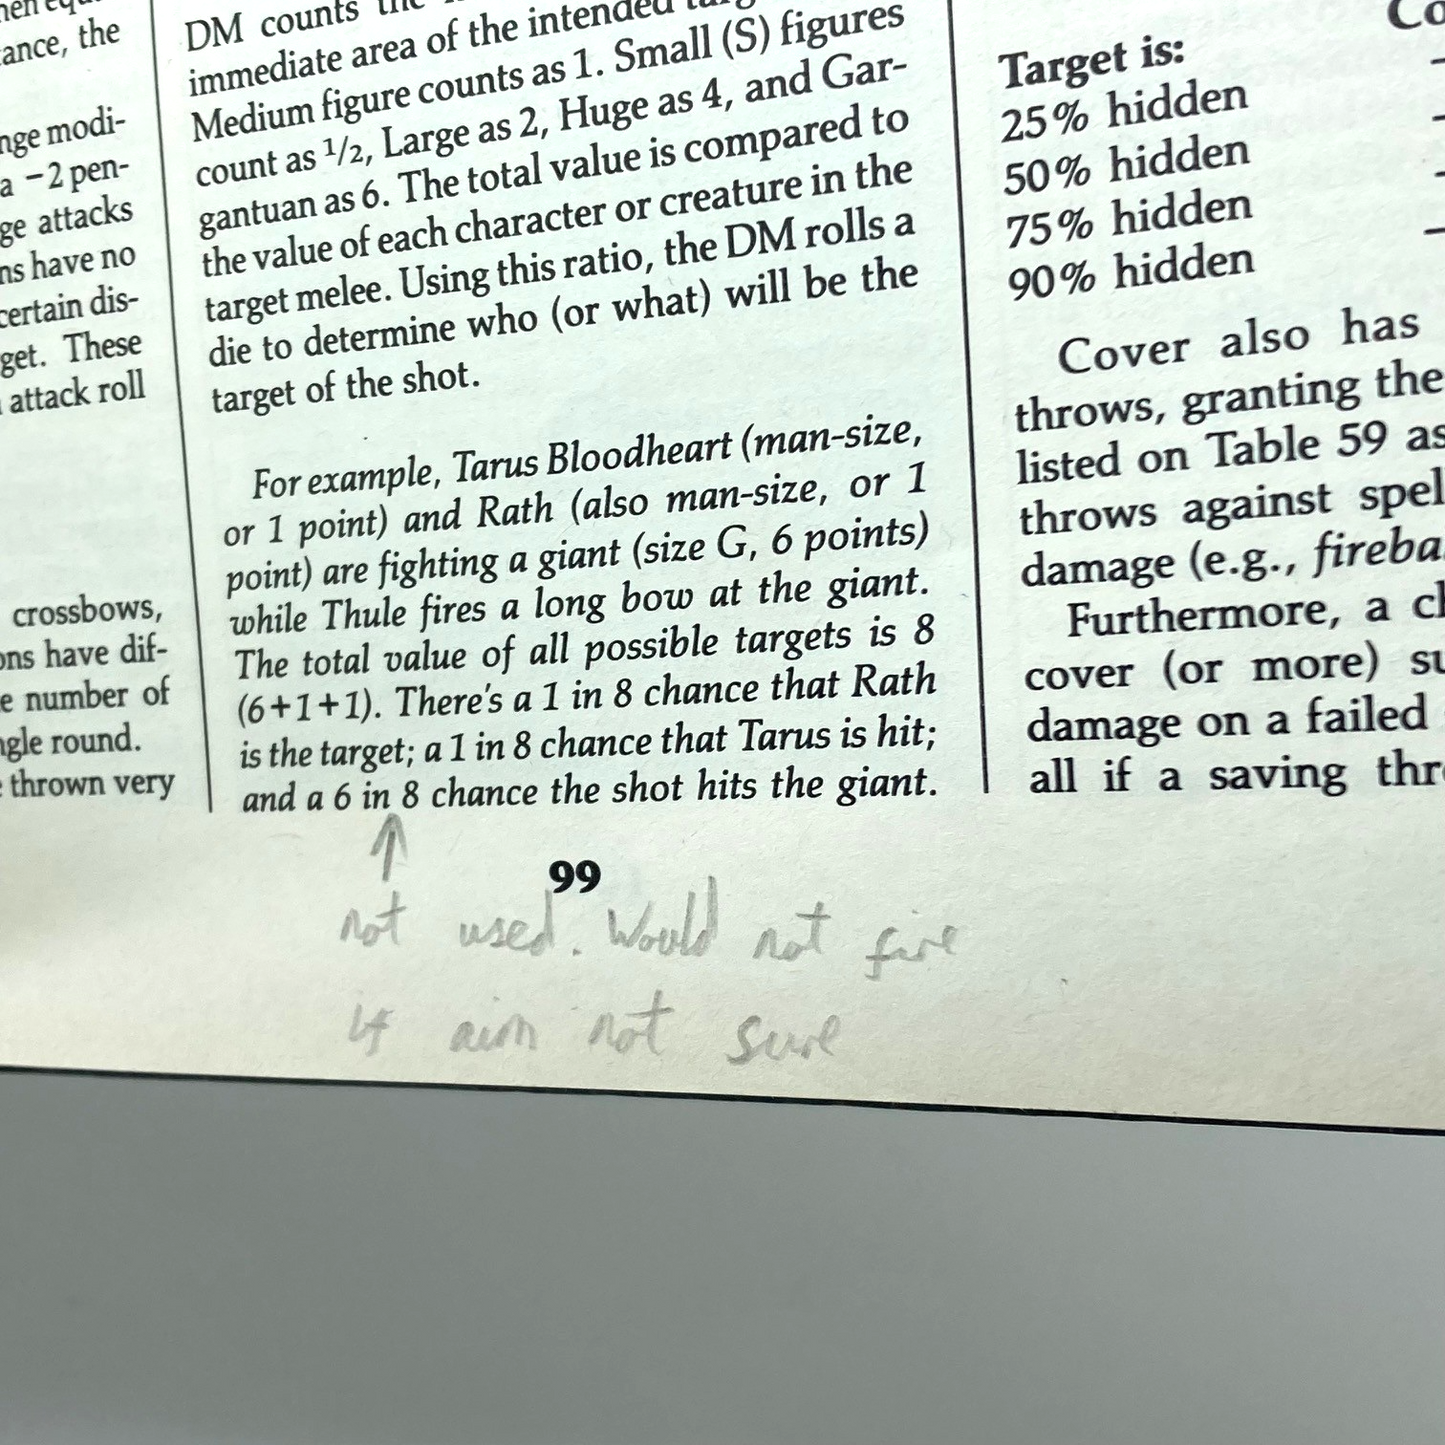 ance, the
nge modi-
a –2 pen-
ge attacks
ns have no
certain dis-
get. These
attack roll
crossbows,
ons have dif-
e number of
ngle round.
thrown very
DM counts the
immediate area of the intended
Medium figure counts as 1. Small (S) figures
count as 1/2, Large as 2, Huge as 4, and Gar-
gantuan as 6. The total value is compared to
the value of each character or creature in the
target melee. Using this ratio, the DM rolls a
die to determine who (or what) will be the
target of the shot.
For example, Tarus Bloodheart (man-size,
or 1 point) and Rath (also man-size, or 1
point) are fighting a giant (size G, 6 points)
while Thule fires a long bow at the giant.
The total value of all possible targets is 8
(6+1+1). There's a 1 in 8 chance that Rath
is the target; a 1 in 8 chance that Tarus is hit;
and a 6 in 8 chance the shot hits the giant.
Target is:
25% hidden
50% hidden
75% hidden
90% hidden
Cover also has
throws, granting the
listed on Table 59 as
throws against spel
damage (e.g., fireba
Furthermore, a ch
cover (or more) su
damage on a failed
all if a saving thr
99
not used. Would not fire
if aim not sure